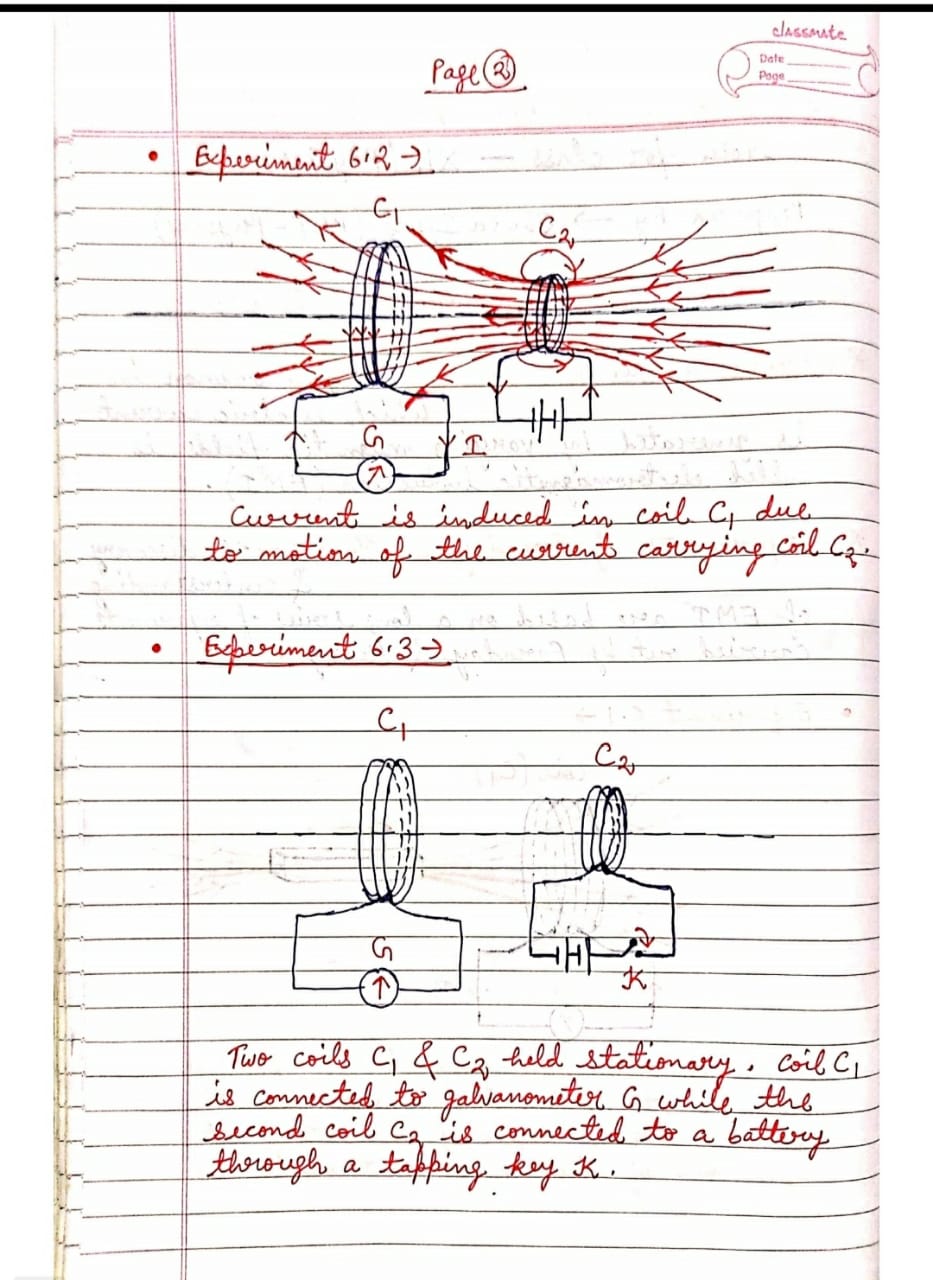 classmate
Date
Page
Page 2
• Experiment 6.2 →
C1
C2
G
I
Current is induced in coil C1 due
to motion of the current carrying coil C2.
• Experiment 6.3 →
C1
C2
G
K
Two coils C1 & C2 held stationary. Coil C1
is connected to galvanometer G while the
second coil C2 is connected to a battery
through a tapping key K.